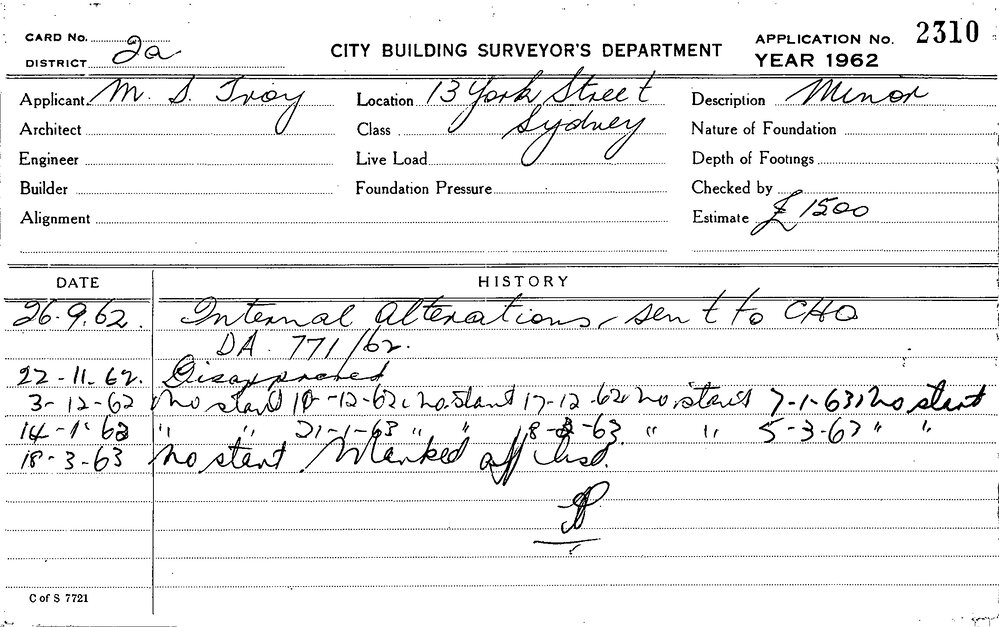 CARD No.
DISTRICT 2a
CITY BUILDING SURVEYOR'S DEPARTMENT
APPLICATION No. 2310
YEAR 1962
Applicant M. S. Troy
Location 13 York Street
Sydney
Description Minor
Architect
Class
Nature of Foundation
Engineer
Live Load
Depth of Footings
Builder
Foundation Pressure
Checked by
Alignment
Estimate £1500
DATE HISTORY
26.9.62. Internal Alterations, sent to CHO
DA. 771/62.
22-11.62. Disapproved
3-12-62 No start 10-12-62, no start 17-12-62 no start 7-1-63, No start
14-1-63 " " 21-1-63 " " 18-2-63. " " 5-3-63 " "
18-3-63 No start. Marked off list.
C of S 7721